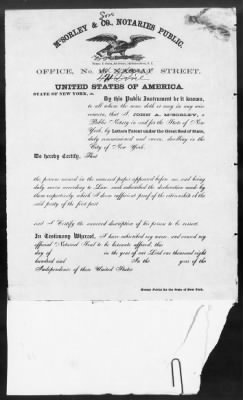 Son
McSORLEY & CO. NOTARIES PUBLIC,
OFFICE, No. STREET.
UNITED STATES OF AMERICA.
STATE OF NEW YORK, ss.
By this Public Instrument be it known,
to all whom the same doth or may in any wise
concern, that I, JOHN A. McSORLEY, a
Public Notary in and for the State of New
York, by Letters Patent under the Great Seal of State,
duly commissioned and sworn, dwelling in the
City of New York.
Do hereby Certify, That
the persons named in the annexed papers appeared before me, and being
duly sworn according to Law, each subscribed the declaration made by
them respectively, which I deem sufficient proof of the citizenship of the
said party of the first part
and I Certify the annexed description of his person to be correct.
In Testimony Whereof, I have subscribed my name, and caused my
official Notarial Seal to be hereunto affixed, this
day of in the year of our Lord one thousand eight
hundred and In the year of the
Independence of these United States
Notary Public for the State of New York.